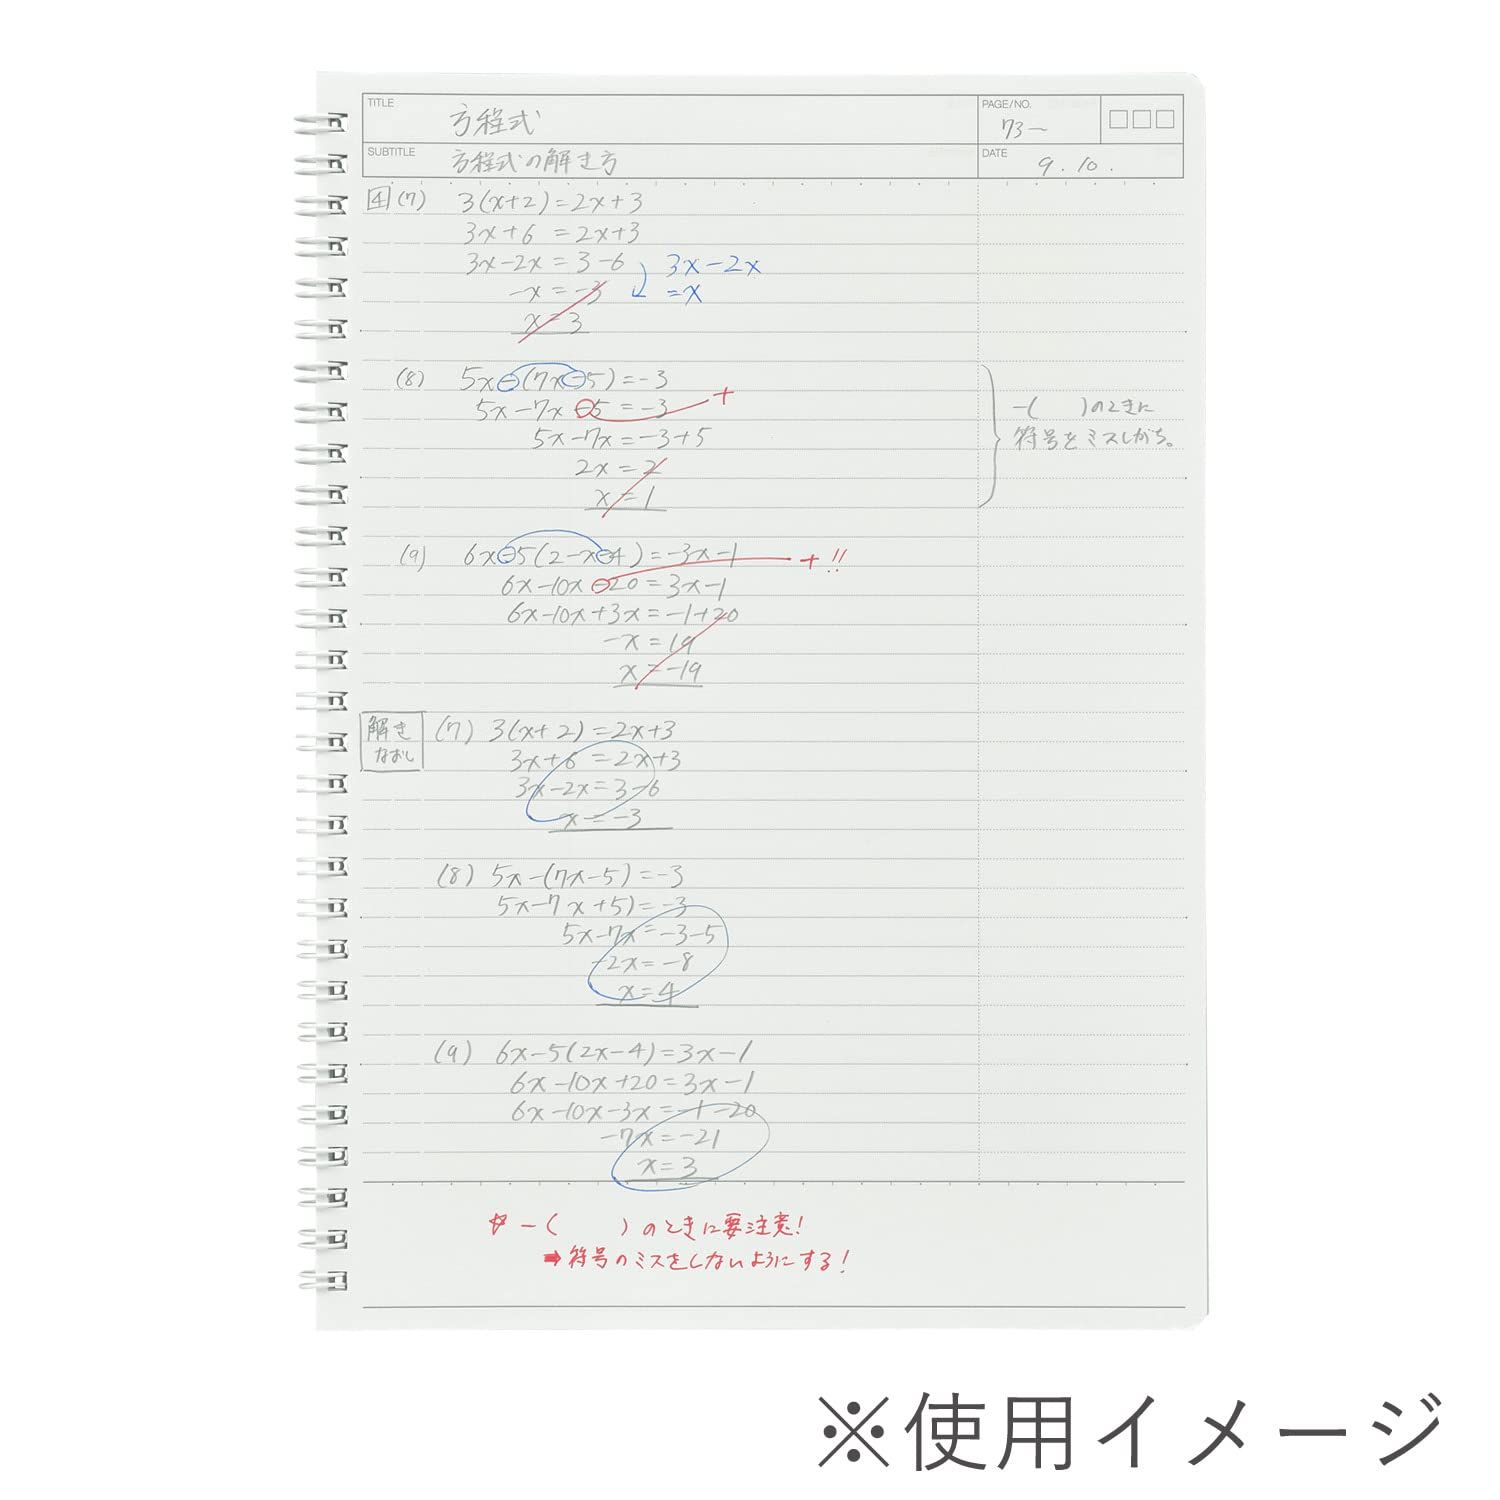 TITLE 方程式 PAGE/NO. 73〜
SUBTITLE 方程式の解き方 DATE 9.10.
4 (7) 3(x+2)=2x+3
3x+6 =2x+3
3x-2x=3-6 3x-2x
-x=-3 =x
x=3
(8) 5x-(7x-5)=-3
5x-7x-5=-3 +
5x-7x=-3+5
2x=2
x=1
-( )のときに
符号をミスしがち。
(9) 6x-5(2-x-4)=-3x-1
6x-10x-20=3x-1 +!!
6x-10x+3x=-1+20
-x=19
x=-19
解き
なおし
(7) 3(x+2)=2x+3
3x+6=2x+3
3x-2x=3-6
x=-3
(8) 5x-(7x-5)=-3
5x-7x+5)=-3
5x-7x=-3-5
-2x=-8
x=4
(9) 6x-5(2x-4)=3x-1
6x-10x+20=3x-1
6x-10x-3x=-1-20
-7x=-21
x=3
☆-( )のときに要注意!
➡符号のミスをしないようにする!
※使用イメージ